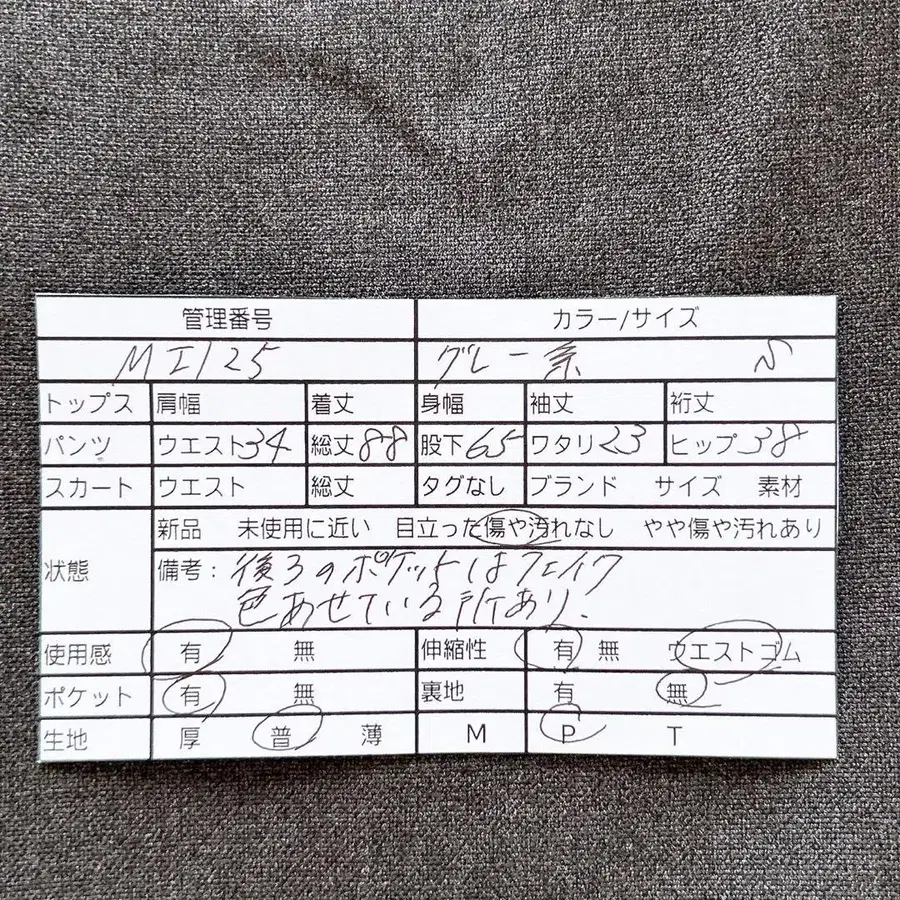 管理番号 カラー/サイズ
MI125 グレー系 S
トップス 肩幅 着丈 身幅 袖丈 裄丈
パンツ ウエスト34 総丈88 股下65 ワタリ23 ヒップ38
スカート ウエスト 総丈 タグなし ブランド サイズ 素材
状態 新品 未使用に近い 目立った傷や汚れなし やや傷や汚れあり
備考：後ろのポケットはフェイク
色あせている所あり.
使用感 有 無 伸縮性 有 無 ウエストゴム
ポケット 有 無 裏地 有 無
生地 厚 普 薄 M P T